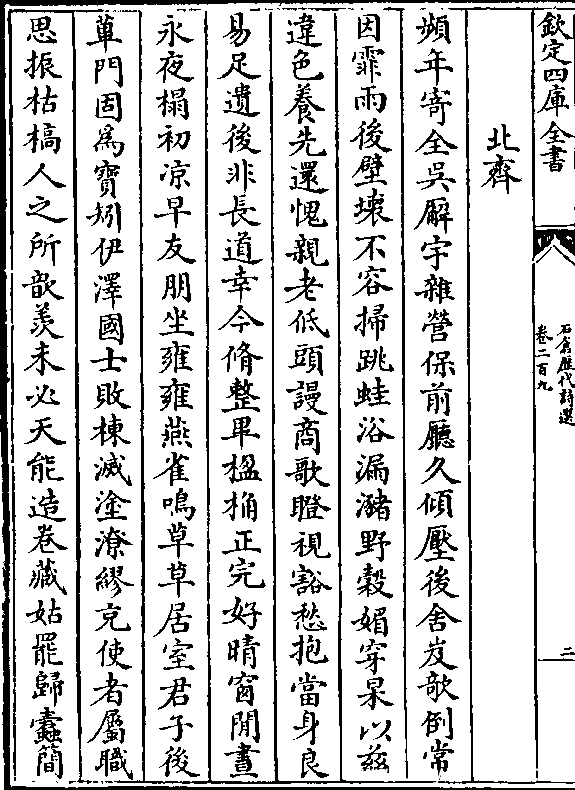 欽定四庫全書
石倉歷代詩選
卷二百九
二
北齋
頻年寄全吳廨宇雜營保前廳久傾壓後舍岌欹倒常
因霏雨後壁壞不容掃跳蛙浴漏瀦野穀媚穿杲以兹
違色養先還愧親老低頭謾商歌瞪視豁愁抱當身良
易足遺後非長道幸今脩整畢楹桷正完好晴窗閒晝
永夜榻初凉早友朋坐雍雍燕雀鳴草草居室君子後
蓽門固為寶矧伊澤國士敗棟滅塗潦繆克使者屬職
思振枯槁人之所歆羡未必天能造卷藏姑罷歸蠹簡